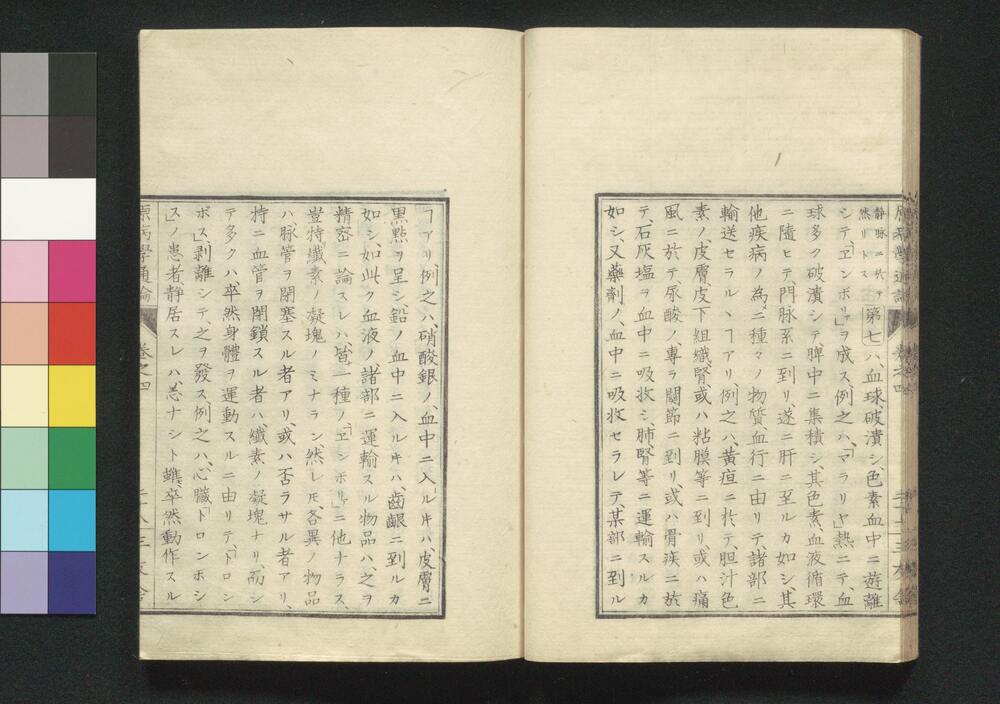 静脉ニ於テ
然リトス
第七ハ、血球破潰シ、色素血中ニ遊離
シテ、「ヱンボリ」ヲ成ス、例之ハ、「マラリヤ」熱ニテ血
球多ク破潰シテ、脾中ニ集積シ、其色素、血液循環
ニ隨ヒテ、門脉系ニ到リ、遂ニ肝ニ至ルカ如シ、其
他疾病ノ為ニ種々ノ物質、血行ニ由リテ、諸部ニ
輸送セラルヽヿアリ、例之ハ、黄疸ニ於テ、胆汁色
素ノ、皮膚、皮下組織、腎、或ハ粘膜等ニ到リ、或ハ痛
風ニ於テ、尿酸ノ專ラ關節ニ到リ、或ハ骨疾ニ於
テ、石灰塩ヲ血中ニ吸收シ、肺、腎等ニ運輸スルカ
如シ、又藥劑ノ、血中ニ吸收セラレテ、某部ニ到ル
ヿアリ、例之ハ、硝酸銀ノ、血中ニ入ルキハ、皮膚ニ
黒點ヲ呈シ、鉛ノ血中ニ入ルキハ、齒齦ニ到ルカ
如シ、如此ク血液ノ諸部ニ運輸スル物品ハ、之ヲ
精密ニ論スレハ、皆一種ノ「ヱンボリ」ニ他ナラス、
豈特纖素ノ凝塊ノミナランヤ、然レ𪜈各異ノ物品
ハ脉管ヲ閉塞スル者アリ、或ハ否ラサル者アリ、
特ニ血管ヲ閉鎖スル者ハ、纖素ノ凝塊ナリ、而シ
テ多クハ、卒然身體ヲ運動スルニ由リテ、「トロン
ボス」剥離シテ、之ヲ發ス、例之ハ、心臟「トロンボシ
ス」ノ患者、靜居スレハ恙ナシト雖、卒然動作スル
原病學通論
卷之四